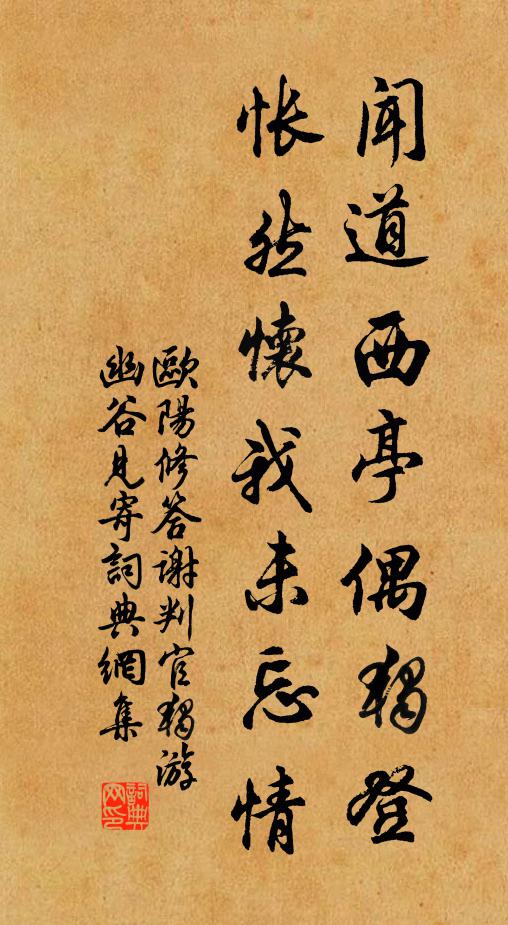 聞道西亭偶獨登
悵然懷我未忘情
歐陽修答謝判官獨游
幽谷見寄詞典網集
詞典网印